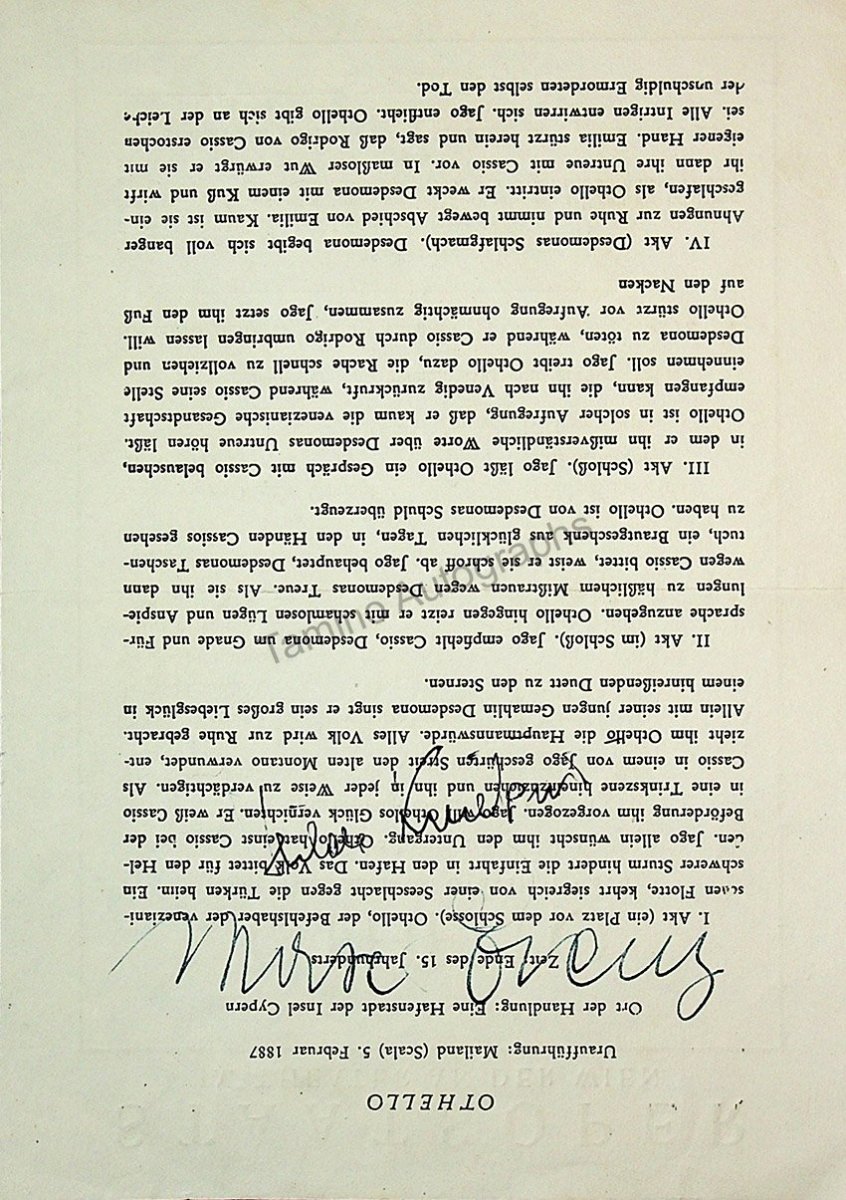 OTHELLO
Uraufführung: Mailand (Scala) 5. Februar 1887
Ort der Handlung: Eine Hafenstadt der Insel Cypern
Zeit: Ende des 15. Jahrhunderts
I. Akt (ein Platz vor dem Schlosse). Othello, der Befehlshaber der veneziani-
schen Flotte, kehrt siegreich von einer Seeschlacht gegen die Türken heim. Ein
schwerer Sturm hindert die Einfahrt in den Hafen. Das Volk bittet für den Hel-
den. Jago allein wünscht ihm den Untergang. Othello hat einst Cassio bei der
Beförderung ihm vorgezogen. Jago will Othellos Glück vernichten. Er weiß Cassio
in eine Trinkszene hineinzuziehen und ihn in jeder Weise zu verdächtigen. Als
Cassio in einem von Jago geschürten Streit den alten Montano verwundet, ent-
zieht ihm Othello die Hauptmannswürde. Alles Volk wird zur Ruhe gebracht.
Allein mit seiner jungen Gemahlin Desdemona singt er sein großes Liebesglück in
einem hinreißenden Duett zu den Sternen.
II. Akt (im Schloß). Jago empfiehlt Cassio, Desdemona um Gnade und Für-
sprache anzugehen. Othello hingegen reizt er mit schamlosen Lügen und Anspie-
lungen zu häßlichem Mißtrauen wegen Desdemonas Treue. Als sie ihn dann
wegen Cassio bittet, weist er sie schroff ab. Jago behauptet, Desdemonas Taschen-
tuch, ein Brautgeschenk aus glücklichen Tagen, in den Händen Cassios gesehen
zu haben. Othello ist von Desdemonas Schuld überzeugt.
III. Akt (Schloß). Jago läßt Othello ein Gespräch mit Cassio belauschen,
in dem er ihn mißverständliche Worte über Desdemonas Untreue hören läßt.
Othello ist in solcher Aufregung, daß er kaum die venezianische Gesandtschaft
empfangen kann, die ihn nach Venedig zurückruft, während Cassio seine Stelle
einnehmen soll. Jago treibt Othello dazu, die Rache schnell zu vollziehen und
Desdemona zu töten, während er Cassio durch Rodrigo umbringen lassen will.
Othello stürzt vor Aufregung ohnmächtig zusammen, Jago setzt ihm den Fuß
auf den Nacken
IV. Akt (Desdemonas Schlafgmach). Desdemona begibt sich voll banger
Ahnungen zur Ruhe und nimmt bewegt Abschied von Emilia. Kaum ist sie ein-
geschlafen, als Othello eintritt. Er weckt Desdemona mit einem Kuß und wirft
ihr dann ihre Untreue mit Cassio vor. In maßloser Wut erwürgt er sie mit
eigener Hand. Emilia stürzt herein und sagt, daß Rodrigo von Cassio erstochen
sei. Alle Intrigen entwirren sich. Jago entflieht. Othello gibt sich an der Leiche
der unschuldig Ermordeten selbst den Tod.
Tamino Autographs